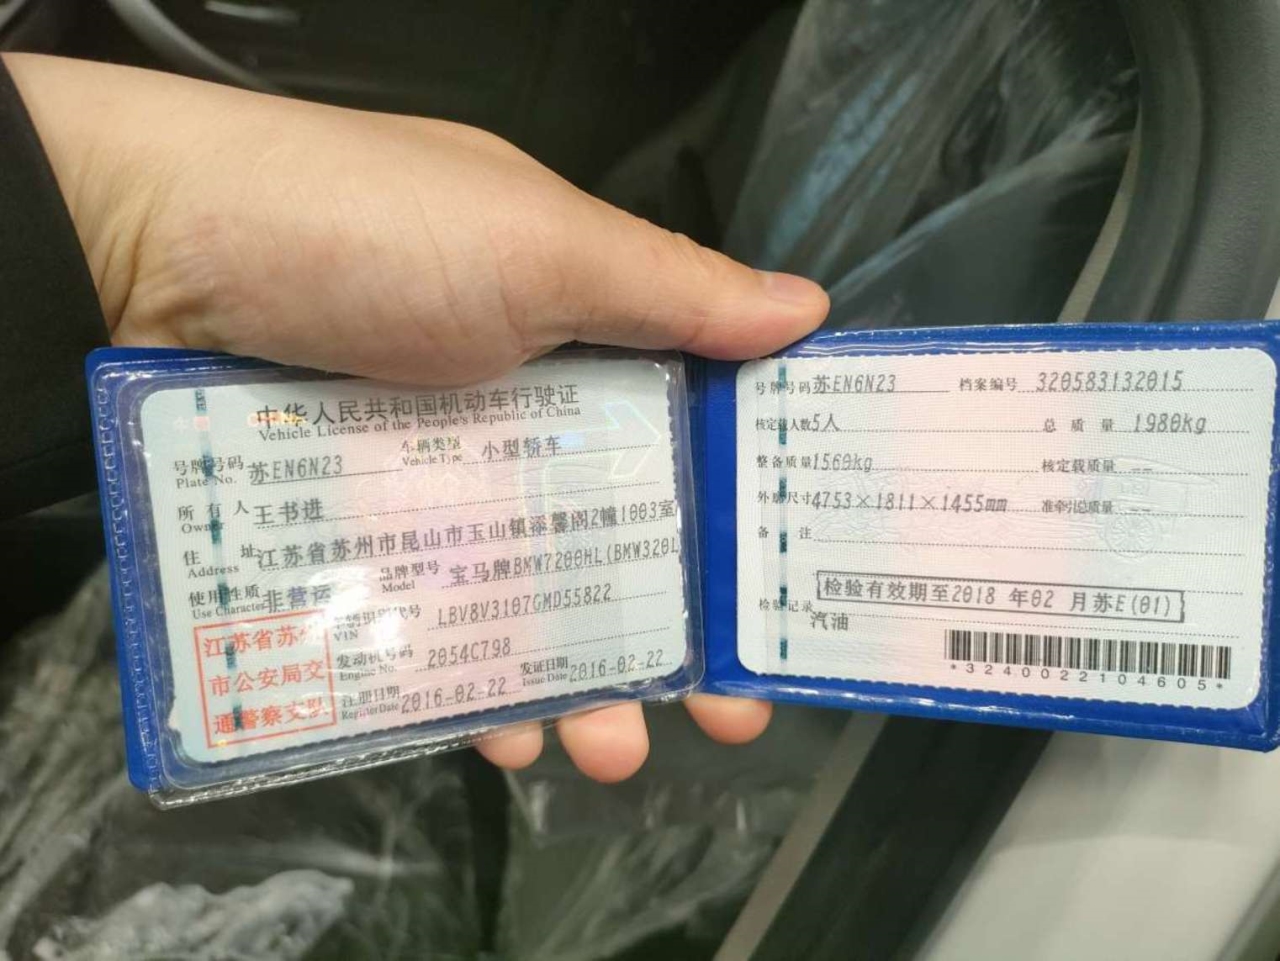 中华人民共和国机动车行驶证
Vehicle License of the People's Republic of China
号牌号码 苏EN6N23 车辆类型 小型轿车
Plate No. Vehicle Type
所有人 王书进
Owner
住址 江苏省苏州市昆山市玉山镇漾馨阁2幢1003室
Address
使用性质 非营运 品牌型号 宝马牌BMW7200HL(BMW320L
Use Character Model
车辆识别代号 LBV8V3107GMD55822
VIN
江苏省苏州
市公安局交
通警察支队
发动机号码 2054C798
Engine No.
注册日期 2016-02-22 发证日期 2016-02-22
Register Date Issue Date
号牌号码 苏EN6N23 档案编号 320583132015
核定载人数 5人 总质量 1980kg
整备质量 1560kg 核定载质量 --
外廓尺寸 4753×1811×1455mm 准牵引总质量 --
备注
检验有效期至2018 年02 月苏E(01)
检验记录
汽油
*3240022104605*